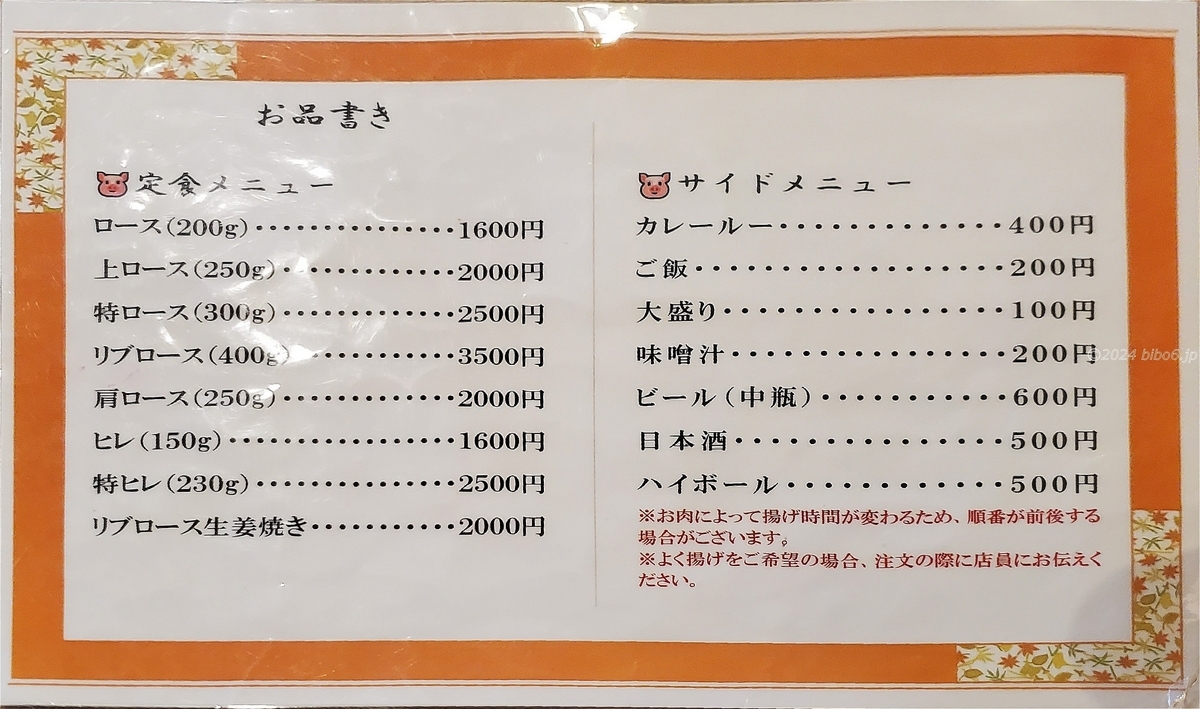 お品書き
定食メニュー
ロース(200g)・・・・・・・・・・・・・・・1600円
上ロース(250g)・・・・・・・・・・・・・2000円
特ロース(300g)・・・・・・・・・・・・・2500円
リブロース(400g)・・・・・・・・・・・3500円
肩ロース(250g)・・・・・・・・・・・・・2000円
ヒレ(150g)・・・・・・・・・・・・・・・・・1600円
特ヒレ(230g)・・・・・・・・・・・・・・・2500円
リブロース生姜焼き・・・・・・・・・・・2000円
サイドメニュー
カレールー・・・・・・・・・・・・・400円
ご飯・・・・・・・・・・・・・・・・・・200円
大盛り・・・・・・・・・・・・・・・・・100円
味噌汁・・・・・・・・・・・・・・・・200円
ビール(中瓶)・・・・・・・・・・・600円
日本酒・・・・・・・・・・・・・・・・500円
ハイボール・・・・・・・・・・・・・500円
※お肉によって揚げ時間が変わるため、順番が前後する
場合がございます。
※よく揚げをご希望の場合、注文の際に店員にお伝えく
ださい。
©2024 bibo6.jp